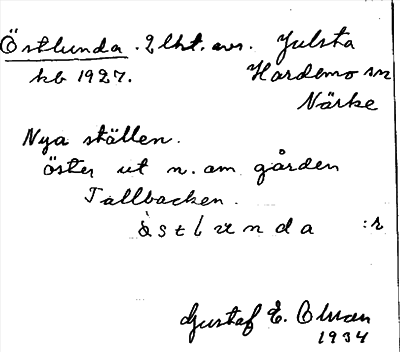 Östlunda. 2 lht. avs. Julsta
kb 1927. Hardemo sn
Närke
Nya ställen.
öster ut n. om gården
Tallbacken.
òstlunda :r
Gustaf E. Olsson
1934